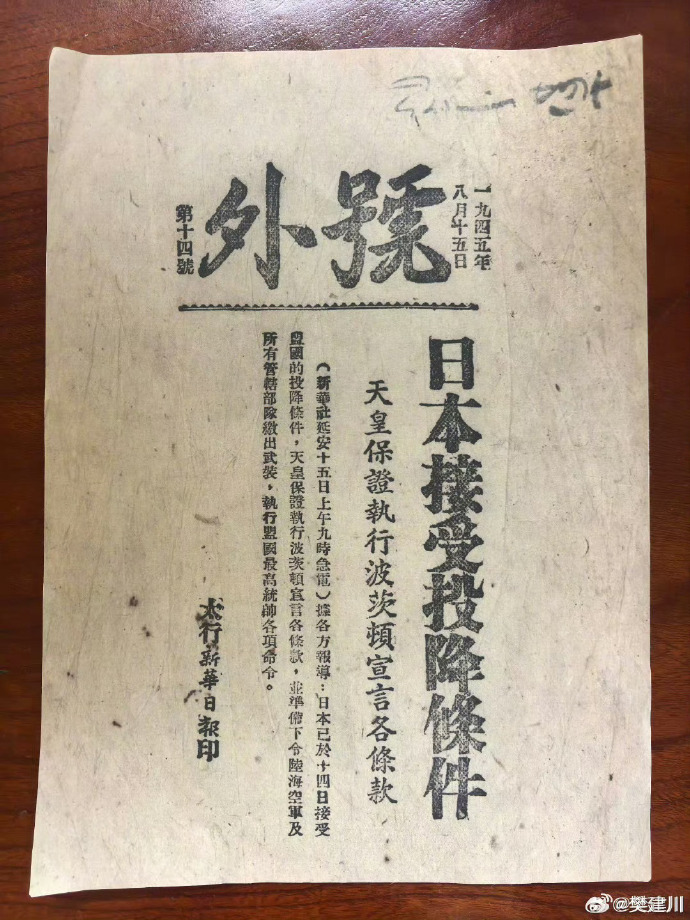 號外
一九四五年
八月十五日
第十四號
日本接受投降條件
天皇保證執行波茨頓宣言各條款
（新華社延安十五日上午九時急電）據各方報導：日本已於十四日接受
盟國的投降條件，天皇保證執行波茨頓宣言各條款，並準備下令陸海空軍及
所有管轄部隊繳出武裝，執行盟國最高統帥各項命令。
太行新華日報印
@樊建川